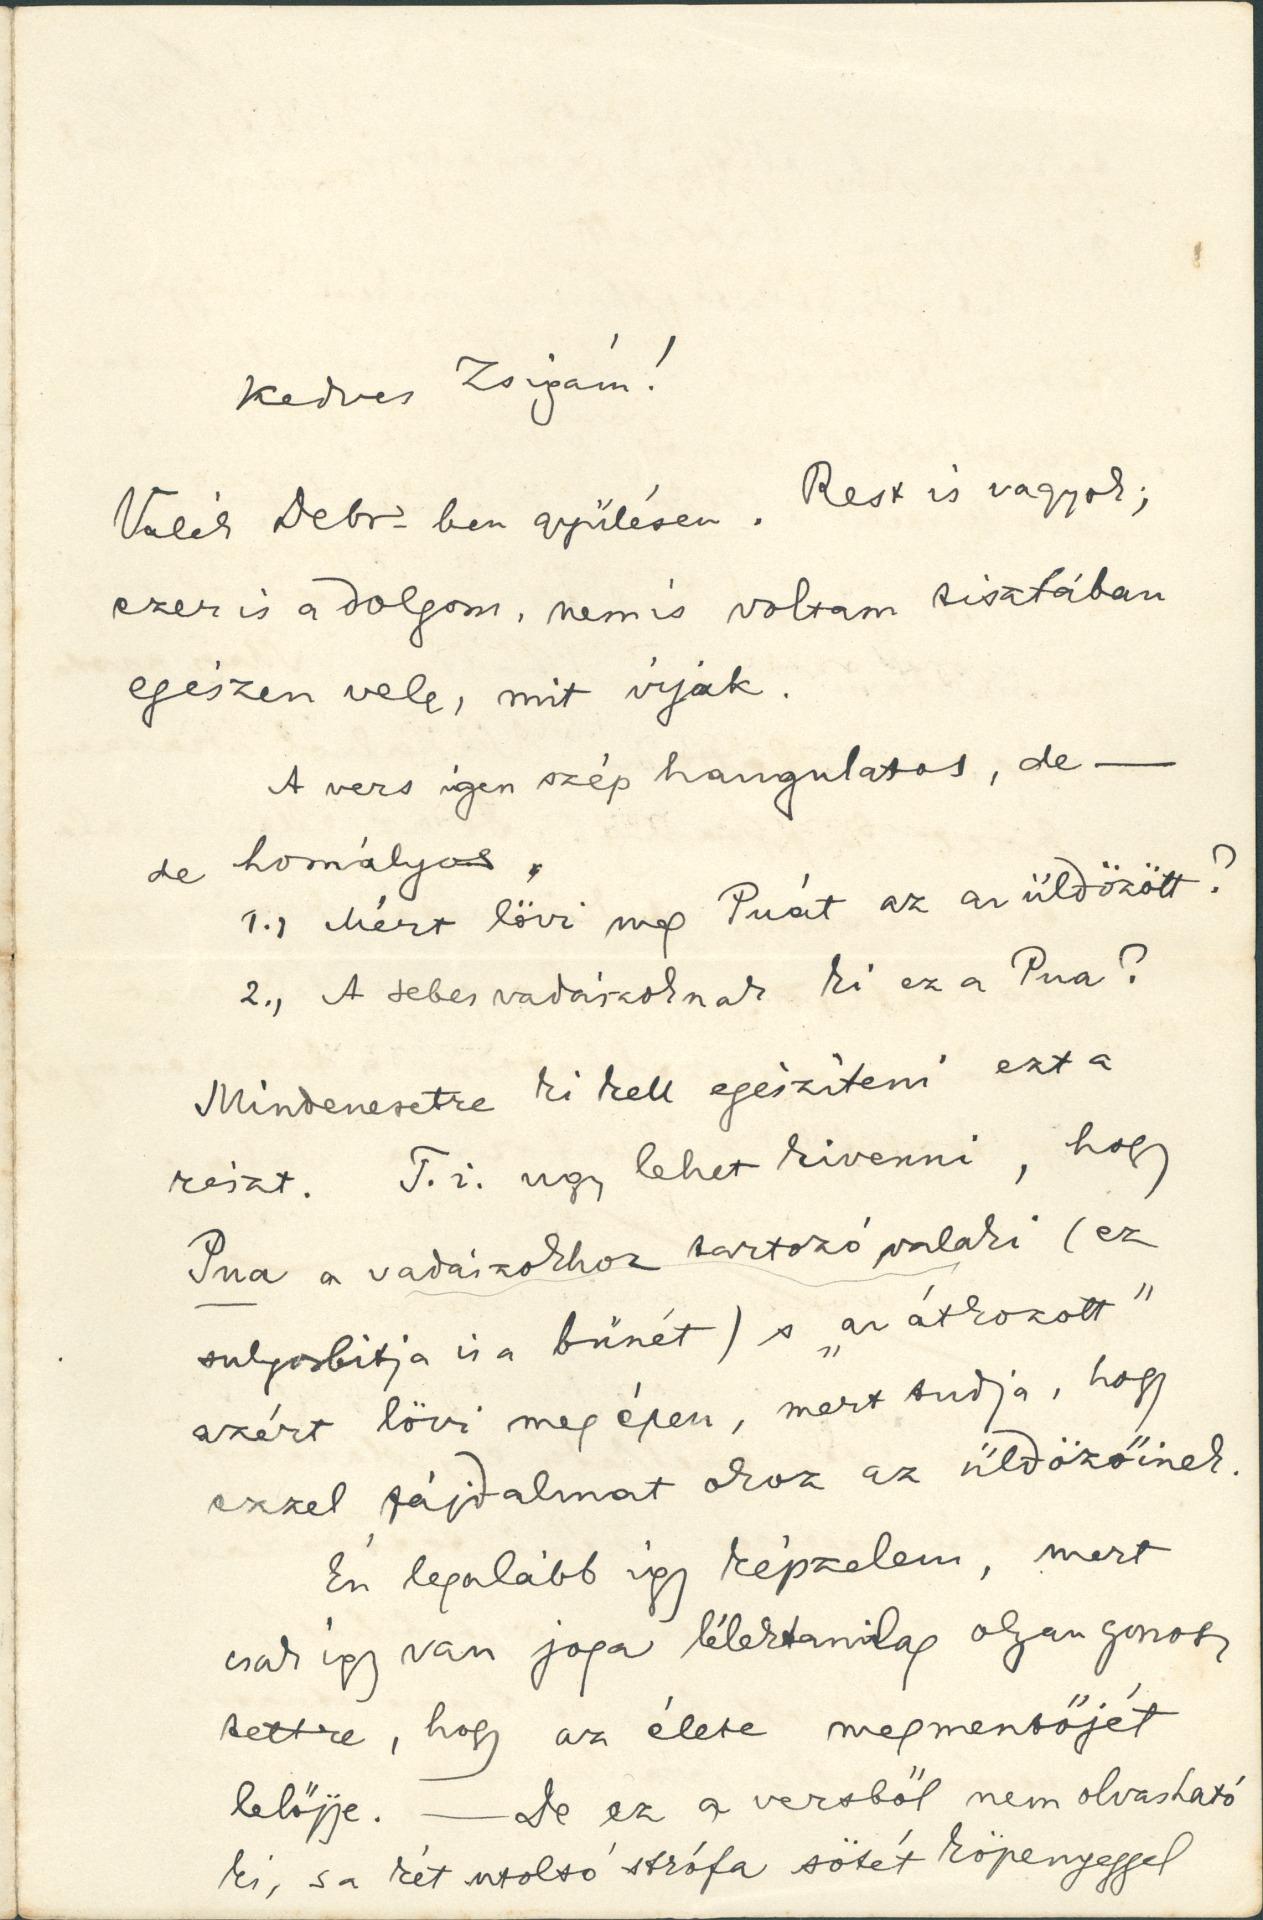 Kedves Zsigám!
Valék Debr-ben gyülésen. Rest is vagyok;
ezer is a dolgom, nem is voltam tisztában
egészen vele, mit írjak.
A vers igen szép hangulatos, de —
de homályos.
1.) Mért lövi meg Puát az az üldözött?
2., A sebes vadászoknak ki ez a Pua?
Mindenesetre ki kell egészíteni ezt a
részt. T. i. ugy lehet kivenni, hogy
Pua a vadászokhoz tartozó valaki (ez
sulyosbitja is a bűnét) s „az átkozott"
azért lövi meg épen, mert tudja, hogy
ezzel fájdalmat okoz az üldözőinek.
Én legalább igy képzelem, mert
csak igy van joga lélektanilag olyan gonosz
tettre, hogy az élete megmentőjét
lelőjje. — De ez a versből nem olvasható
ki, s a két utolsó strófa sötét köpenyeggel